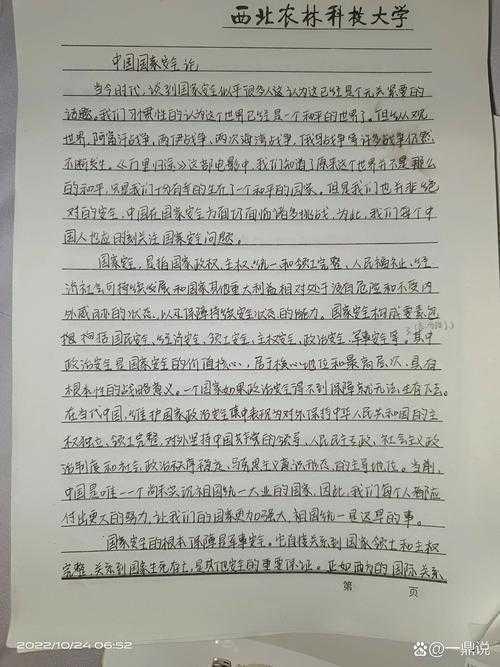 西北农林科技大学
中国国家安全论
当今时代，谈到国家安全似乎很多人会认为这已经是个无关紧要的
话题。我们习惯性的认为这个世界已经是一个和平的世界了。但纵观
世界，阿富汗战争，两伊战争，两次海湾战争，俄乌战争等许多战争依然
不断发生。《万里归途》这部电影中，我们知道了原来这个世界并不是那么
的和平，只是我们十分有幸的生在了一个和平的国家。但是我们也并非绝
对的安全，中国在国家安全方面仍面临诸多挑战，为此，我们每个中
国人也应时刻关注国家安全问题。
国家安全，是指国家政权、主权、统一和领土完整、人民福祉、经
济社会可持续发展和国家其他重大利益相对处于没有危险和不受内
外威胁的状态，以及保障持续安全状态的能力。国家安全构成要素包
括国民安全，经济安全，领土安全，主权安全，政治安全，军事安全等，其中
政治安全是国家安全的价值核心，居于核心地位和最高层次，具有
根本性的战略意义。一个国家如果政治安全得不到保障就无法生存下去。
在当代中国，维护国家政治安全集中表现为对外保持中华人民共和国的主
权独立、领土完整，对内坚持中国共产党的领导、人民民主专政、社会主义政
治制度和社会政治秩序稳定、马克思主义意识形态的主导地位。当前，
中国是唯一个尚未完成祖国统一大业的国家，因此，我们每个人都应
付出更大的努力，让我们的国家更加强大，祖国统一是迟早的事。
国家安全的根本保障是军事安全，它直接关系到国家领土和主权
完整，关系到国家生死存亡，是其他安全的重要保证。正如西方的国际关系
第 页
2022/10/24 06:52
百家号/一鼎说